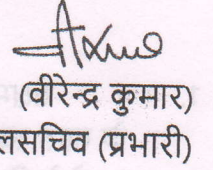 (वीरेन्द्र कुमार)
लसचिव (प्रभारी)